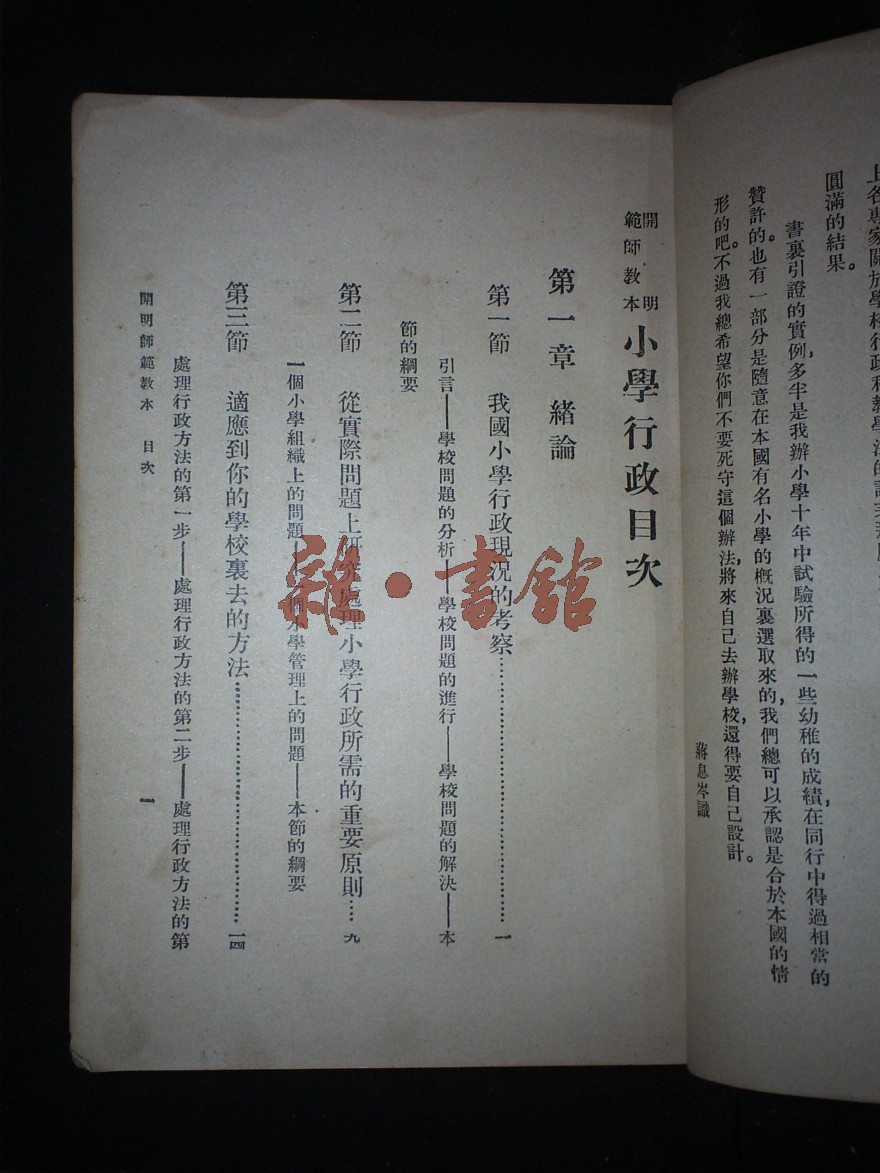 上各專家關於學校行政和教學法的
圓滿的結果。
書裏引證的實例，多半是我辦小學十年中試驗所得的一些幼稚的成績，在同行中得過相當的
贊許的。也有一部分是隨意在本國有名小學的概況裏選取來的，我們總可以承認是合於本國的情
形的吧。不過我總希望你們不要死守這個辦法，將來自己去辦學校，還得要自己設計。
蔣息岑識
開明
範師教本
小學行政目次
第一章 緒論
第一節 我國小學行政現況的考察……一
引言——學校問題的分析——學校問題的進行——學校問題的解決——本
節的綱要
第二節 從實際問題上研究處理小學行政所需的重要原則……九
一個小學組織上的問題——一個小學管理上的問題——本節的綱要
第三節 適應到你的學校裏去的方法……一四
處理行政方法的第一步——處理行政方法的第二步——處理行政方法的第
開明師範教本 目次
一
雜·書館